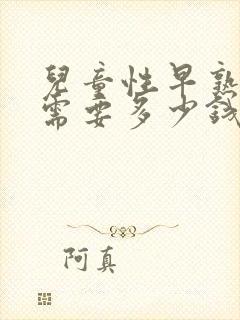 兒童性早熟
需要多少錢
阿真